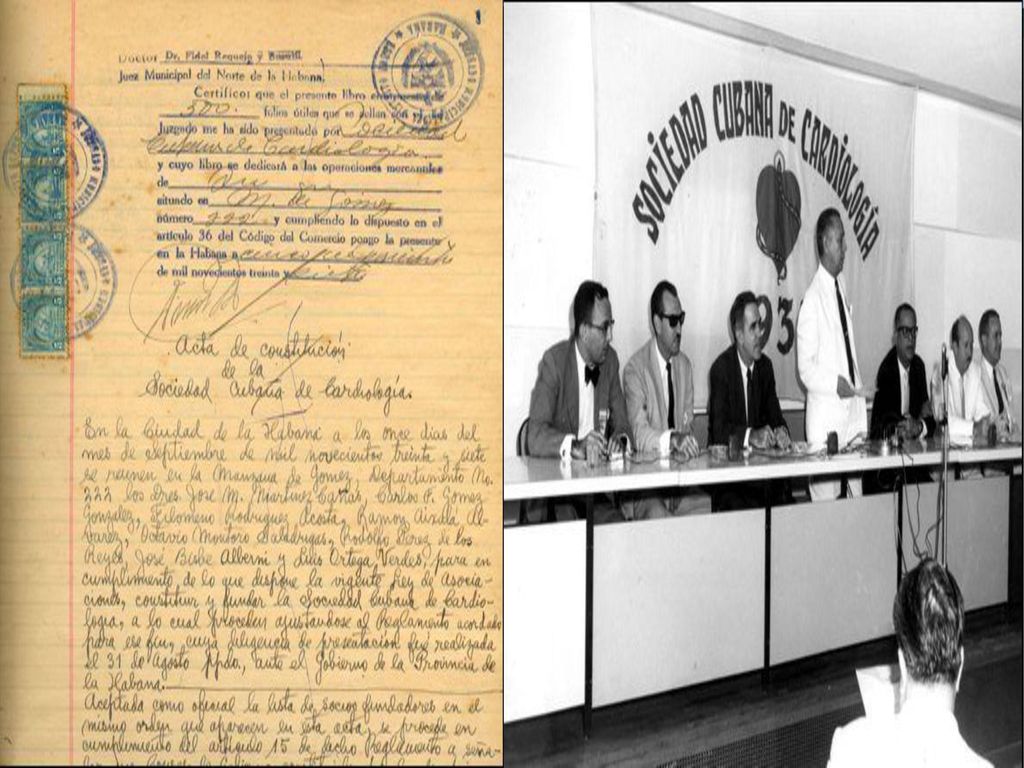 1
Doctor Dr. Fidel Requejo y
Juez Municipal del Norte de la Habana,
Certifico: que el presente libro
500. folios útiles que se sellan con el
Juzgado me ha sido presentado por Sociedad
Cubana de Cardiologia
y cuyo libro se dedicará a las operaciones mercantiles
de
situado en M. de Gómez
número 222 y cumpliendo lo dispuesto en el
artículo 36 del Código del Comercio pongo la presente
en la Habana a
de mil novecientos treinta y siete
Acta de constitución
de la
Sociedad Cubana de Cardiología.
En la Ciudad de la Habana a los once dias del
mes de septiembre de mil novecientos treinta y siete
se reunen en la Manzana de Gomez, Departamento No.
222 los Dres. Jose M. Martinez Cañas, Carlos F. Gomez
Gonzalez, Filomeno Rodriguez Acosta, Ramon Aixala Al-
varez, Octavio Montoro Saladrigas, Rodolfo Perez de los
Reyes, José Bisbe Alberni y Luis Ortega Verdes, para en
cumplimiento de lo que dispone la vigente Ley de Asocia-
ciones, constituir y fundar la Sociedad Cubana de Cardio-
logia, a lo cual proceden ajustandose al Reglamento acordado
para ese fin, cuya diligencia de presentación fué realizada
el 31 de agosto ppdo, ante el Gobierno de la Provincia de
la Habana.
Aceptada como oficial la lista de socios fundadores en el
mismo orden que aparecen en esta acta, se procede en
cumplimiento del artículo 15 de dicho Reglamento a seña-
SOCIEDAD CUBANA DE CARDIOLOGÍA
93